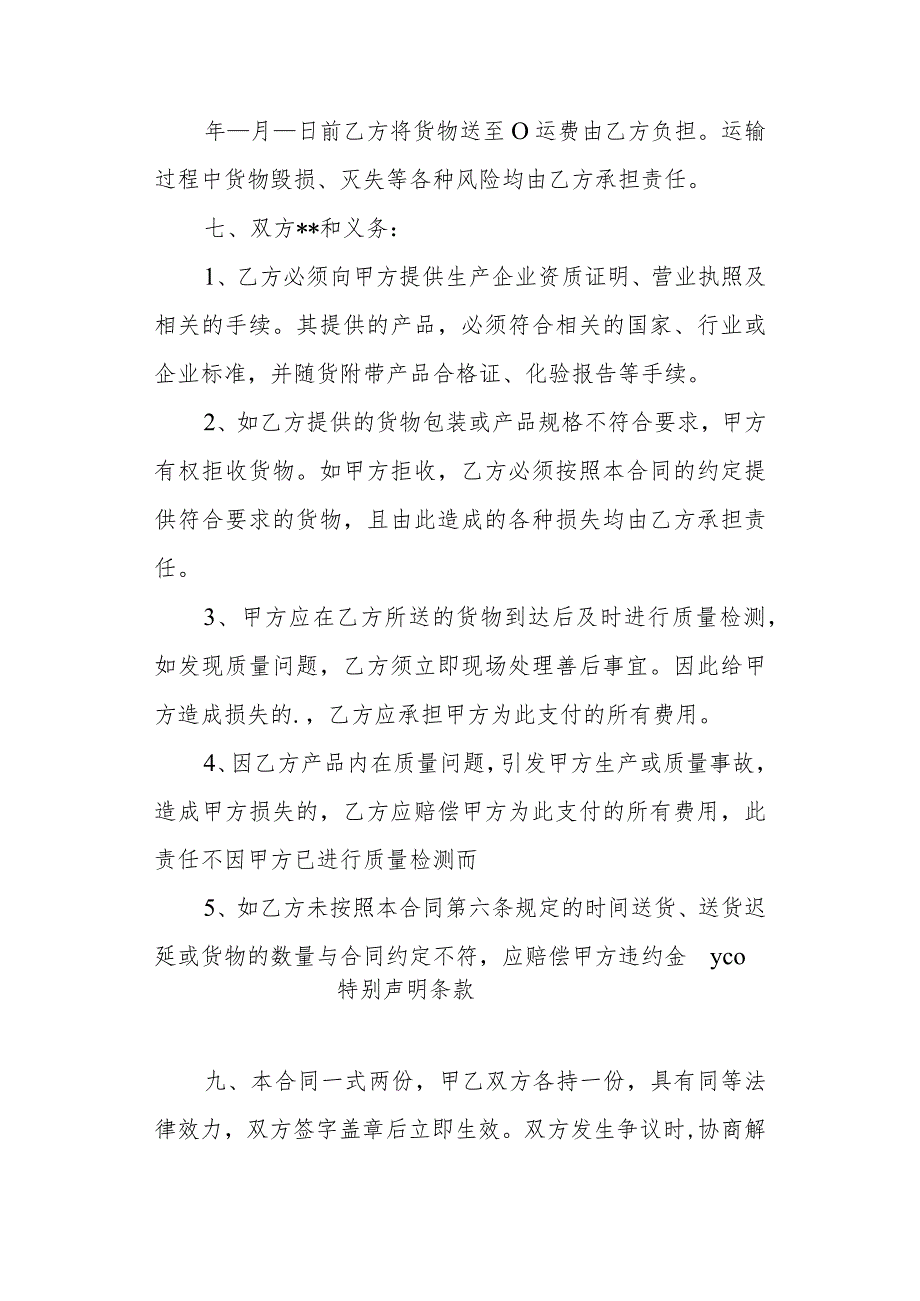 年—月—日前乙方将货物送至O运费由乙方负担。运输
过程中货物毁损、灭失等各种风险均由乙方承担责任。
七、双方**和义务：
1、乙方必须向甲方提供生产企业资质证明、营业执照及
相关的手续。其提供的产品，必须符合相关的国家、行业或
企业标准，并随货附带产品合格证、化验报告等手续。
2、如乙方提供的货物包装或产品规格不符合要求，甲方
有权拒收货物。如甲方拒收，乙方必须按照本合同的约定提
供符合要求的货物，且由此造成的各种损失均由乙方承担责
任。
3、甲方应在乙方所送的货物到达后及时进行质量检测，
如发现质量问题，乙方须立即现场处理善后事宜。因此给甲
方造成损失的.，乙方应承担甲方为此支付的所有费用。
4、因乙方产品内在质量问题，引发甲方生产或质量事故，
造成甲方损失的，乙方应赔偿甲方为此支付的所有费用，此
责任不因甲方已进行质量检测而
5、如乙方未按照本合同第六条规定的时间送货、送货迟
延或货物的数量与合同约定不符，应赔偿甲方违约金 yco
特别声明条款
九、本合同一式两份，甲乙双方各持一份，具有同等法
律效力，双方签字盖章后立即生效。双方发生争议时,协商解